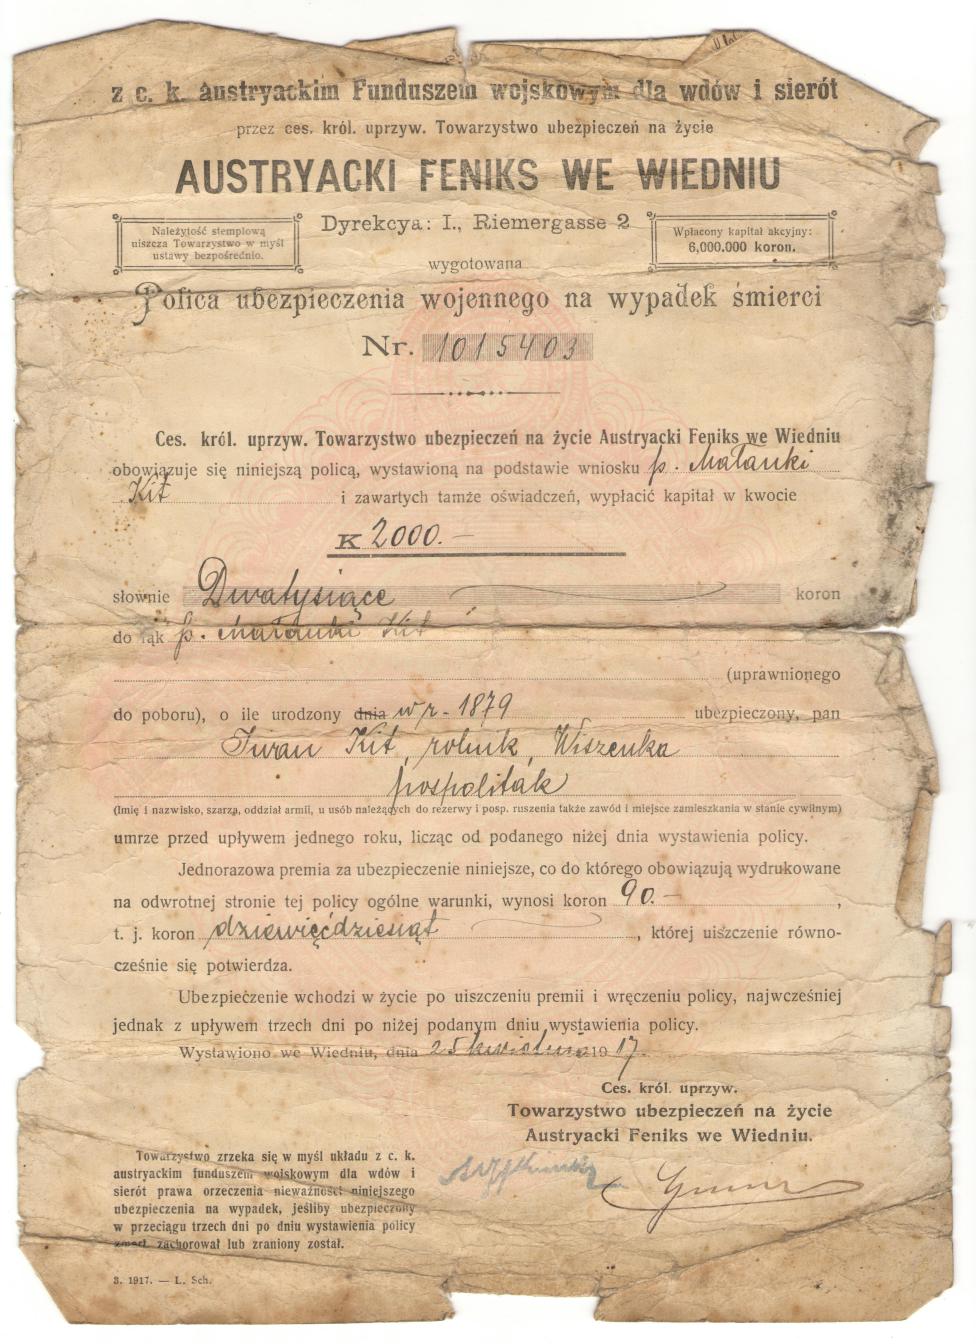 z c. k. austryackim Funduszem wojskowym dla wdów i sierót
przez ces. król. uprzyw. Towarzystwo ubezpieczeń na życie
AUSTRYACKI FENIKS WE WIEDNIU
Dyrekcya: I., Riemergasse 2
Należytość stemplową
uiszcza Towarzystwo w myśl
ustawy bezpośrednio.
Wpłacony kapitał akcyjny:
6,000.000 koron.
wygotowana
Polica ubezpieczenia wojennego na wypadek śmierci
Nr. 1015403
Ces. król. uprzyw. Towarzystwo ubezpieczeń na życie Austryacki Feniks we Wiedniu
obowiązuje się niniejszą policą, wystawioną na podstawie wniosku p. Małanki
Kit i zawartych tamże oświadczeń, wypłacić kapitał w kwocie
K 2000.—
słownie Dwatysiące koron
do rąk p. Małanki Kit
(uprawnionego
do poboru), o ile urodzony dnia w r. 1879 ubezpieczony, pan
Iwan Kit, rolnik, Wiszenka
pospolitak
(Imię i nazwisko, szarża, oddział armii, u osób należących do rezerwy i posp. ruszenia także zawód i miejsce zamieszkania w stanie cywilnym)
umrze przed upływem jednego roku, licząc od podanego niżej dnia wystawienia policy.
Jednorazowa premia za ubezpieczenie niniejsze, co do którego obowiązują wydrukowane
na odwrotnej stronie tej policy ogólne warunki, wynosi koron 90.—,
t. j. koron dziewięćdziesiąt, której uiszczenie równo-
cześnie się potwierdza.
Ubezpieczenie wchodzi w życie po uiszczeniu premii i wręczeniu policy, najwcześniej
jednak z upływem trzech dni po niżej podanym dniu wystawienia policy.
Wystawiono we Wiedniu, dnia 25 kwietnia 1917.
Ces. król. uprzyw.
Towarzystwo ubezpieczeń na życie
Austryacki Feniks we Wiedniu.
Towarzystwo zrzeka się w myśl układu z c. k.
austryackim funduszem wojskowym dla wdów i
sierót prawa orzeczenia nieważności niniejszego
ubezpieczenia na wypadek, jeśliby ubezpieczony
w przeciągu trzech dni po dniu wystawienia policy
zmarł, zachorował lub zraniony został.
3. 1917. — L. Sch.